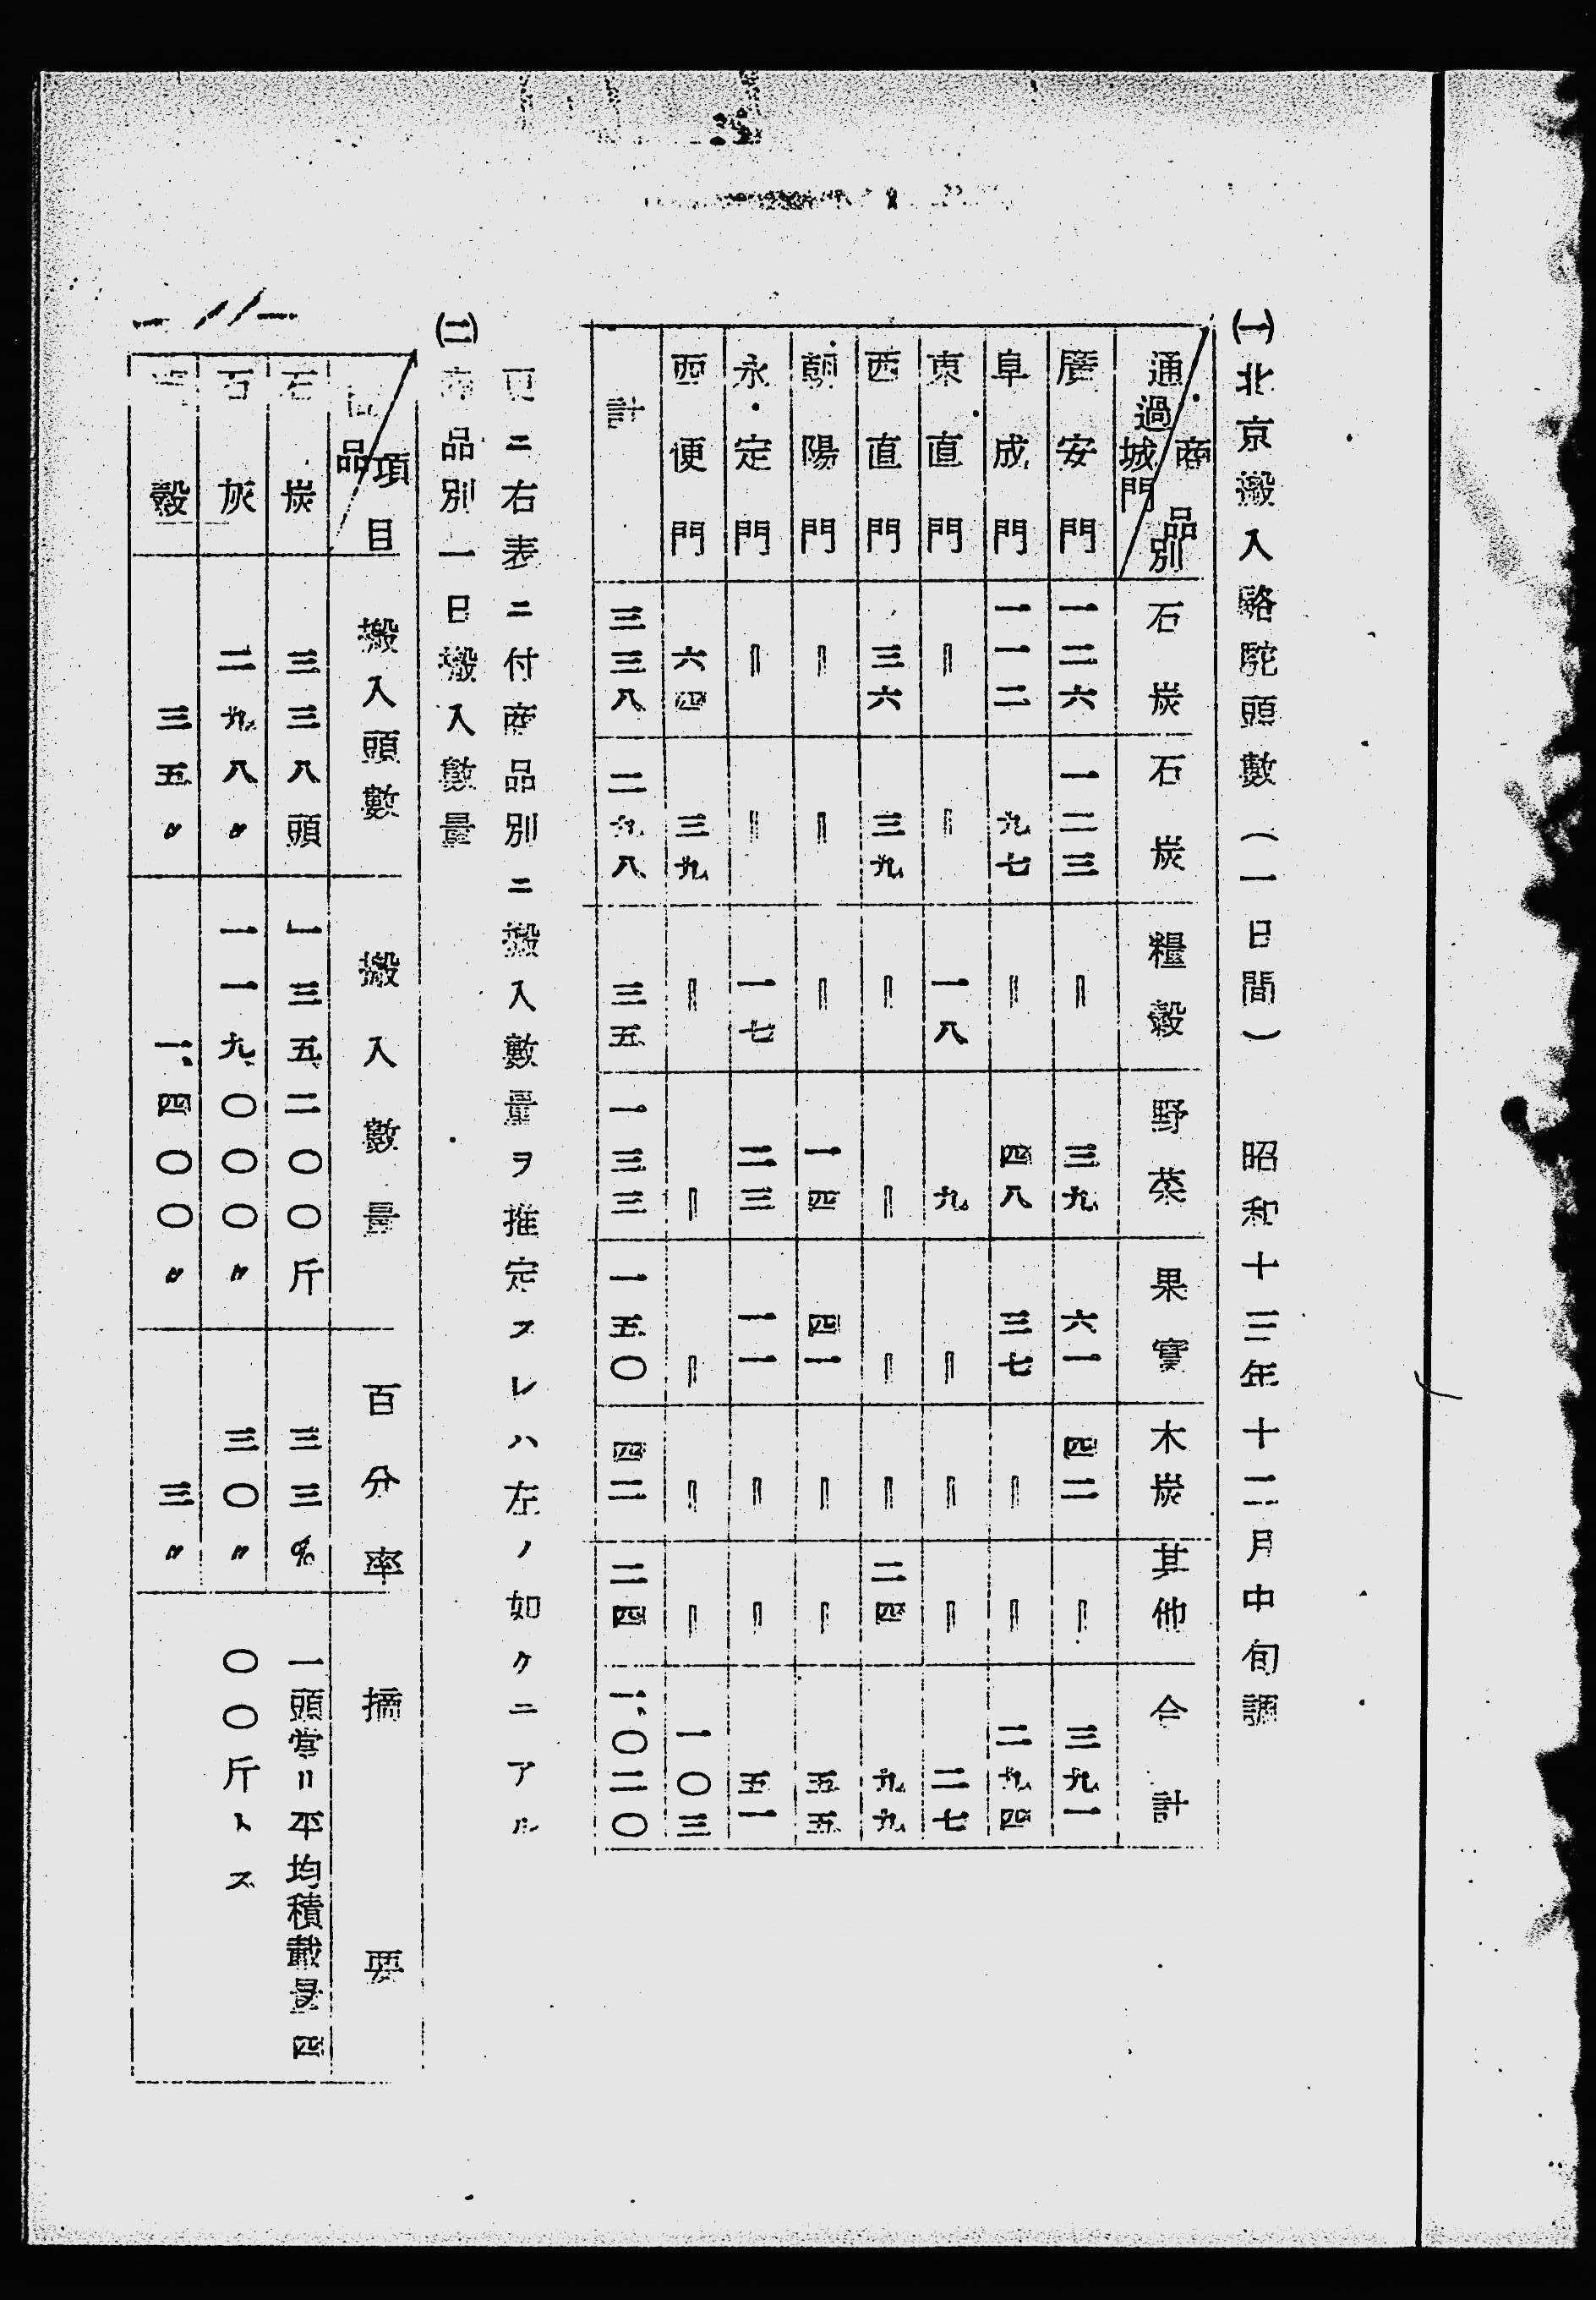 ㈠北京搬入駱駝頭數（一日間） 昭和十三年十二月中旬調
通過城門 商品別 石炭 石炭 糧穀 野菜 果實 木炭 其他 合計
廣安門 一二六 一二三 〃 三九 六一 四二 〃 三九一
阜成門 一一二 九七 〃 四八 三七 〃 〃 二九四
東直門 〃 〃 一八 九 〃 〃 〃 二七
西直門 三六 三九 〃 〃 〃 〃 二四 九九
朝陽門 〃 〃 〃 一四 四一 〃 〃 五五
永定門 〃 〃 一七 二三 一一 〃 〃 五一
西便門 六四 三九 〃 〃 〃 〃 〃 一〇三
計 三三八 二九八 三五 一三三 一五〇 四二 二四 一、〇二〇
更ニ右表ニ付商品別ニ搬入數量ヲ推定スレハ左ノ如クニアル
㈡商品別一日搬入數量
品 項目 搬入頭數 搬入數量 百分率 摘要
石炭 三三八頭 一三五、二〇〇斤 三三% 一頭當リ平均積載量四
石灰 二九八〃 一一九、〇〇〇〃 三〇〃 〇〇斤トス
穀 三五〃 一、四〇〇〃 三〃
一11一